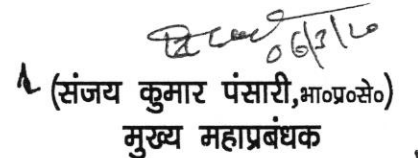 06/3/20
(संजय कुमार पंसारी,भा०प्र०से०)
मुख्य महाप्रबंधक